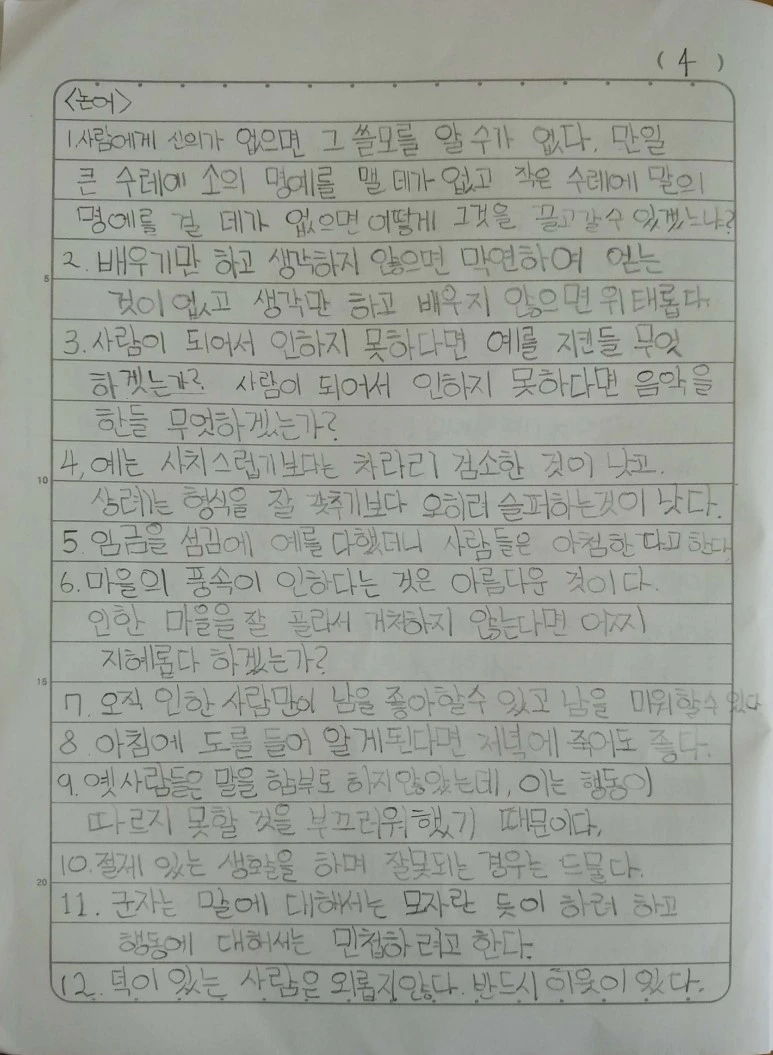 (4)
<논어>
1. 사람에게 신의가 없으면 그 쓸모를 알 수가 없다. 만일
큰 수레에 소의 명예를 맬 데가 없고 작은 수레에 말의
명에를 걸 데가 없으면 어떻게 그것을 끌고갈 수 있겠느냐?
2. 배우기만 하고 생각하지 않으면 막연하여 얻는
5
것이 없고 생각만 하고 배우지 않으면 위태롭다.
3. 사람이 되어서 인하지 못하다면 예를 지킨들 무엇
하겠는가? 사람이 되어서 인하지 못하다면 음악을
한들 무엇하겠는가?
4. 예는 사치스럽기보다는 차라리 검소한 것이 낫고.
10
상례는 형식을 잘 갖추기보다 오히려 슬퍼하는것이 낫다.
5. 임금을 섬김에 예를 다했더니 사람들은 아첨한다고 한다.
6. 마을의 풍속이 인하다는 것은 아름다운 것이다.
인한 마을을 잘 골라서 거처하지 않는다면 어찌
지혜롭다 하겠는가?
15
7. 오직 인한 사람만이 남을 좋아할수 있고 남을 미워할수 있다
8. 아침에 도를 들어 알게된다면 저녁에 죽어도 좋다.
9. 옛사람들은 말을 함부로 하지않았는데, 이는 행동이
따르지 못할 것을 부끄러워했기 때문이다.
10. 절제 있는 생활을 하며 잘못되는 경우는 드물다.
20
11. 군자는 말에 대해서는 모자란 듯이 하려 하고
행동에 대해서는 민첩하려고 한다.
12. 덕이 있는 사람은 외롭지않다. 반드시 이웃이 있다.